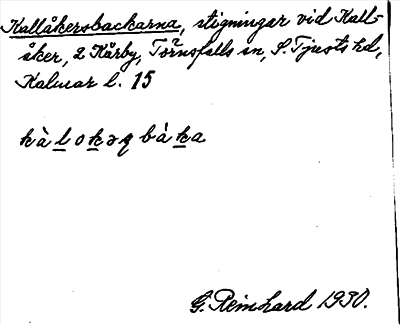 Kallåkersbackarna, stigningar vid Kall-
åker, 2 Kårby, Törnsfalls sn, S. Tjusts hd,
Kalmar l. 15
kàlokəɋ bàka
G. Reinhard 1930.